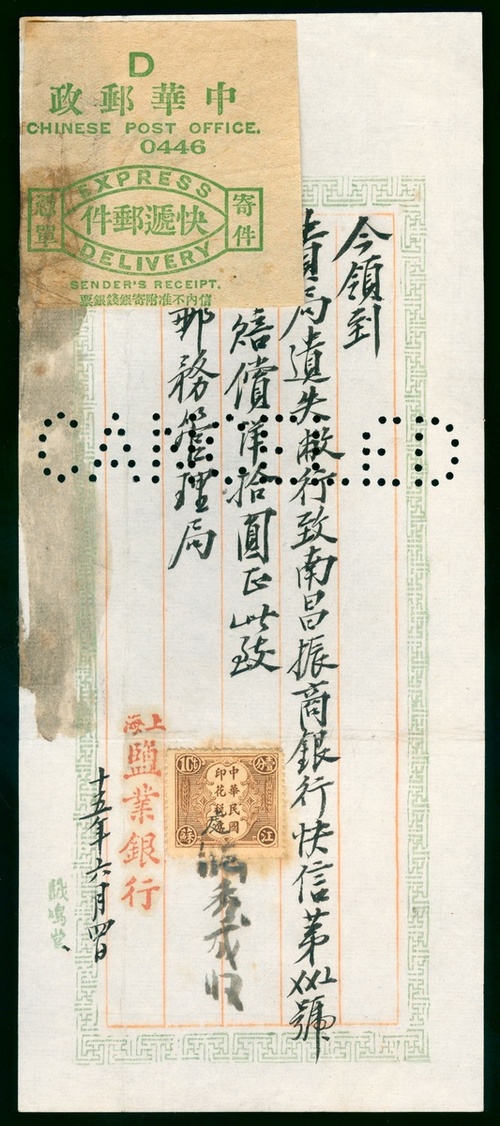 D
中華郵政
CHINESE POST OFFICE.
0446
EXPRESS
寄件
快遞郵件
憑單
DELIVERY
SENDER'S RECEIPT.
信內不准附寄銀錢銀票
今領到
貴局遺失敝行致南昌振商銀行快信第號
賠償洋拾圓正此致
郵務管理局
CANCELLED
壹分
中華民國
印花稅
江蘇
上海
鹽業銀行
十五年六月四日